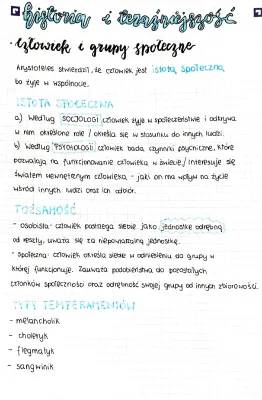 historia i teraźniejszość
· człowiek i grupy społeczne
Arystoteles stwierdził, że człowiek jest istotą społeczną
bo żyje w wspólnocie.
ISTOTA SPOŁECZNA
a) według SOCJOLOGI człowiek żyje w społeczeństwie i odgrywa
w nim określone role / określa się w stosunku do innych ludzi.
b) według PSYCHOLOGII człowiek bada czynniki psychiczne, które
pozwalają na funkcjonowanie człowieka w świecie / interesuje się
światem wewnętrznym człowieka - jaki on ma wpływ na życie
wśród innych ludzi oraz ich odbiór.
TOŻSAMOŚĆ
- osobista - człowiek postrzega siebie jako jednostkę odrębną
od reszty, uważa się za niepowtarzalną jednostkę.
- społeczna - człowiek określa siebie w odniesieniu do grupy w
której funkcjonuje. Zauważa podobieństwa do pozostałych
członków społeczności oraz odrębność swojej grupy od innych zbiorowości.
TYPY TEMPERAMENTÓW
- melancholik
- choleryk
- flegmatyk
- sangwinik